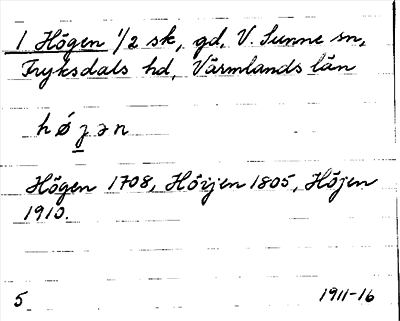 1 Högen 1/2 sk, gd, V. Sunne sn,
Fryksdals hd, Värmlands län
hǿʒən
Högen 1708, Hörjen 1805, Höjen
1910.
5 1911-16